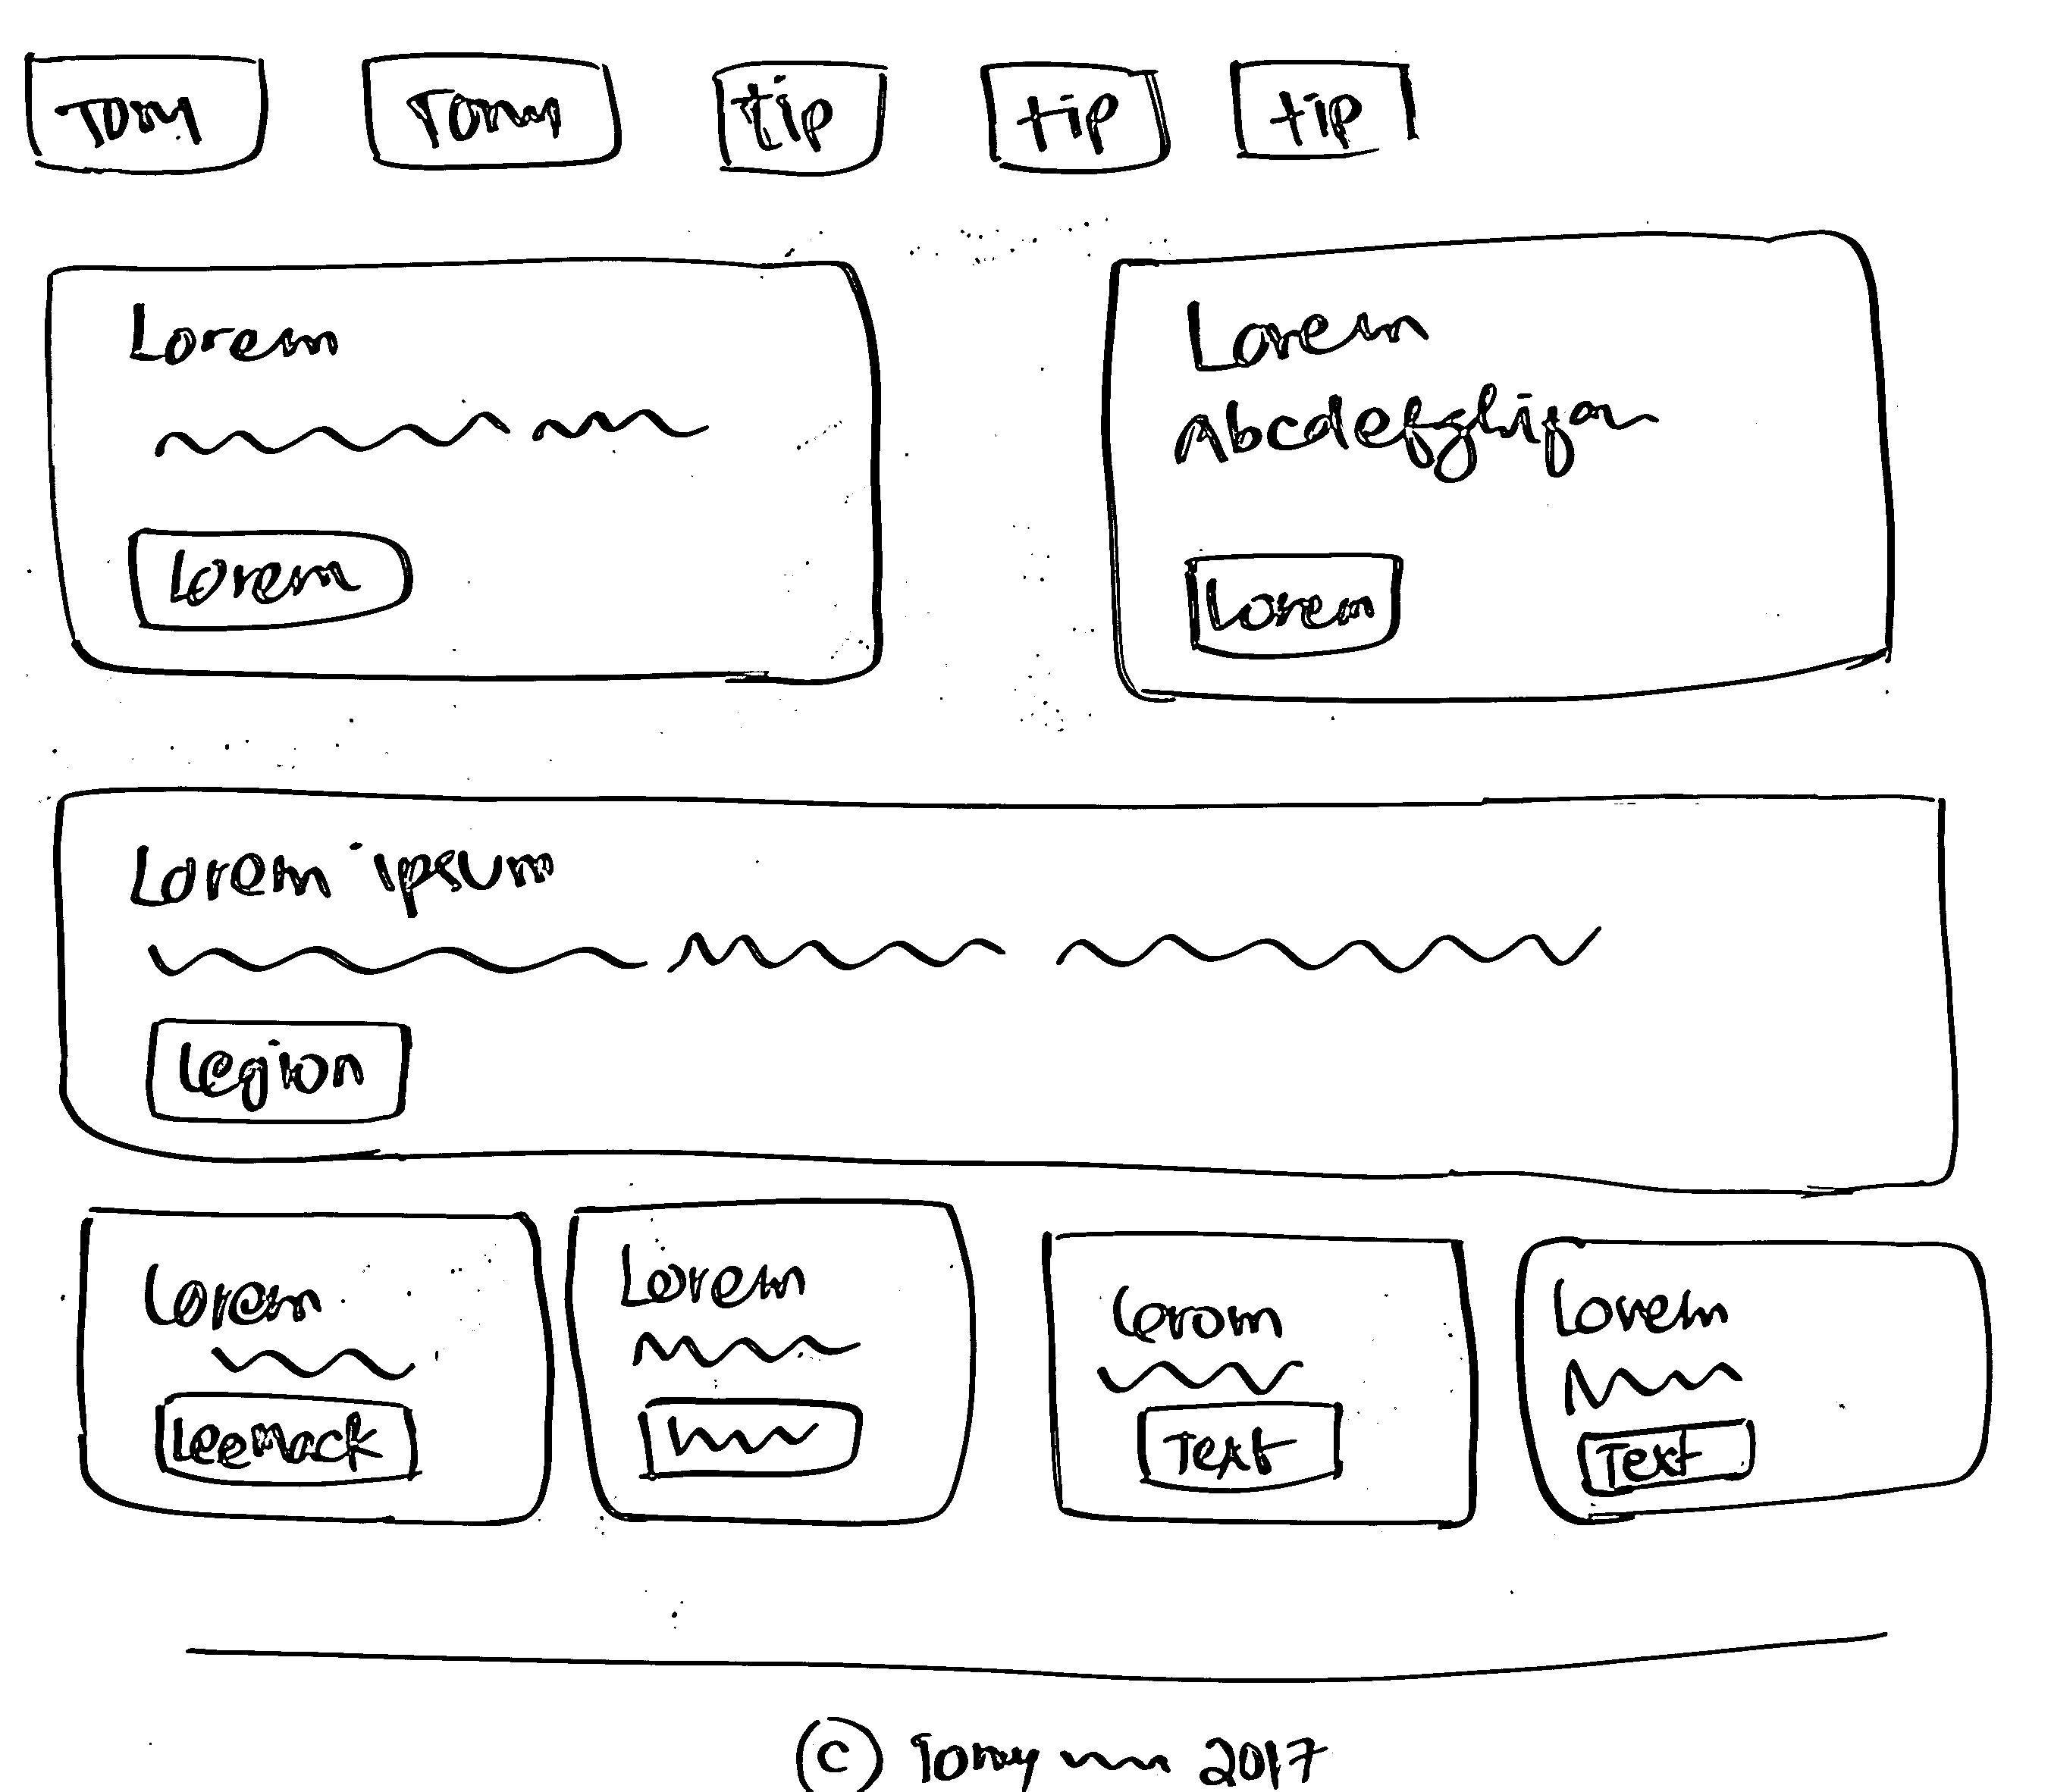 Tony
tip
tip
tip
Lorem
Lorem
Lorem
Abcdefghij
Lorem
Lorem ipsum
Legion
Lorem
Leemack
Lorem
Lorom
Text
Lorem
Text
© Tony 2017